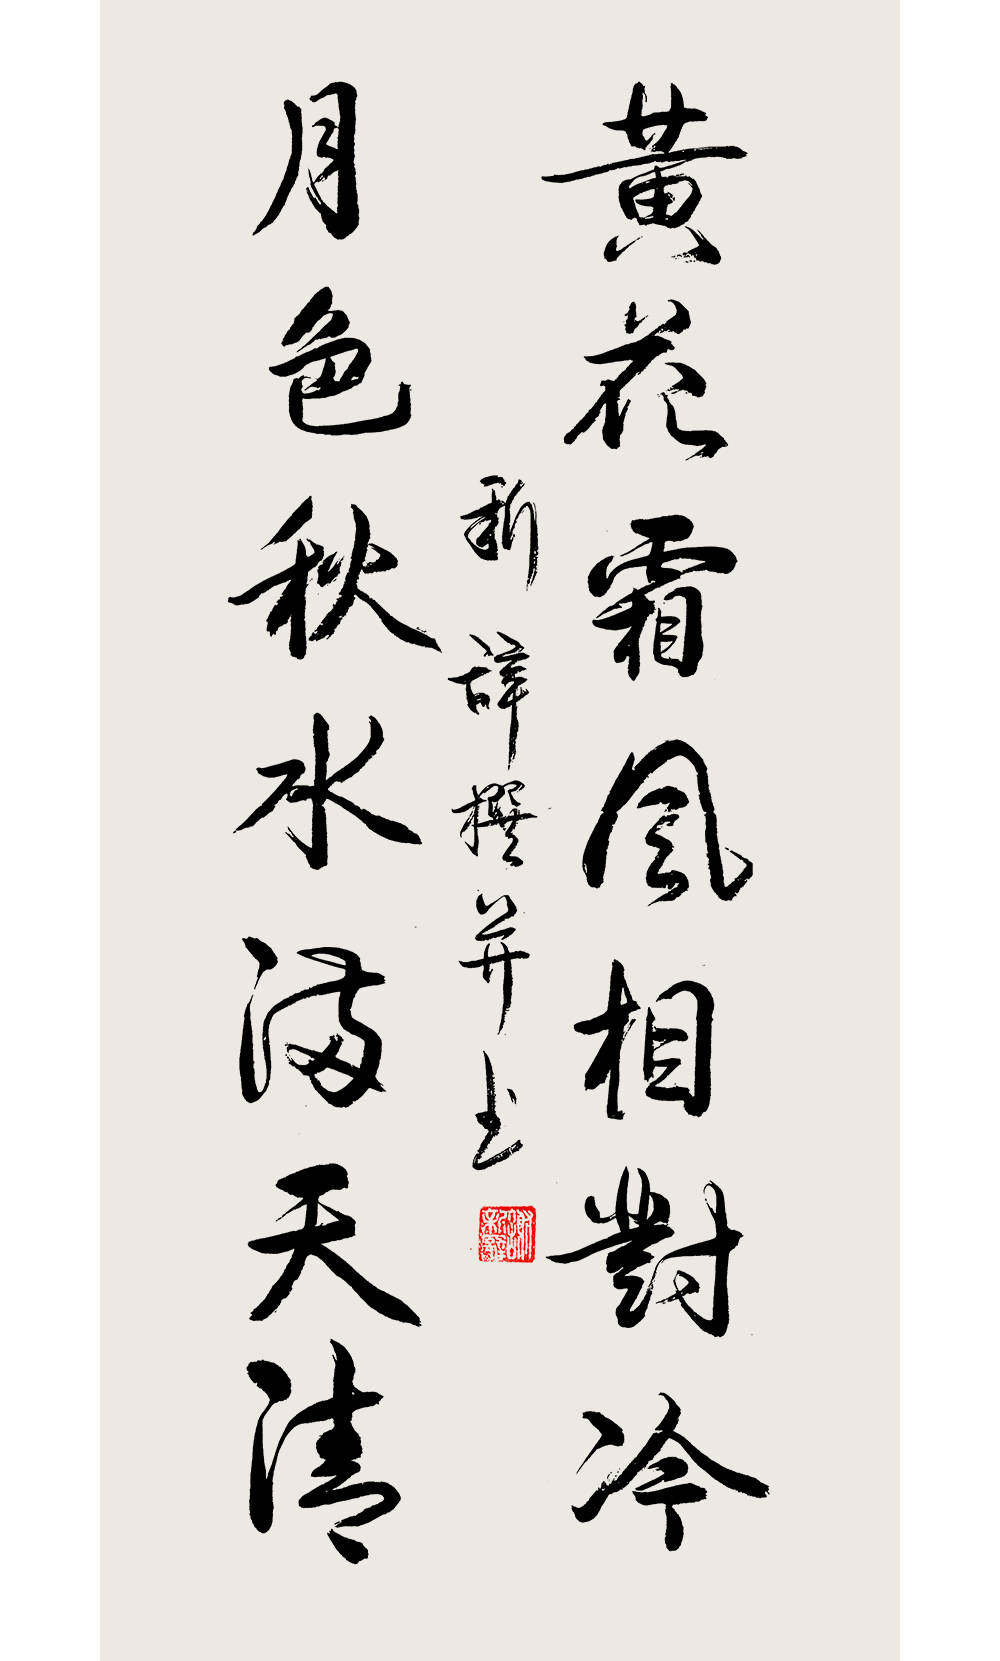 黃花霜風相對冷
月色秋水滿天清
新辞撰并书